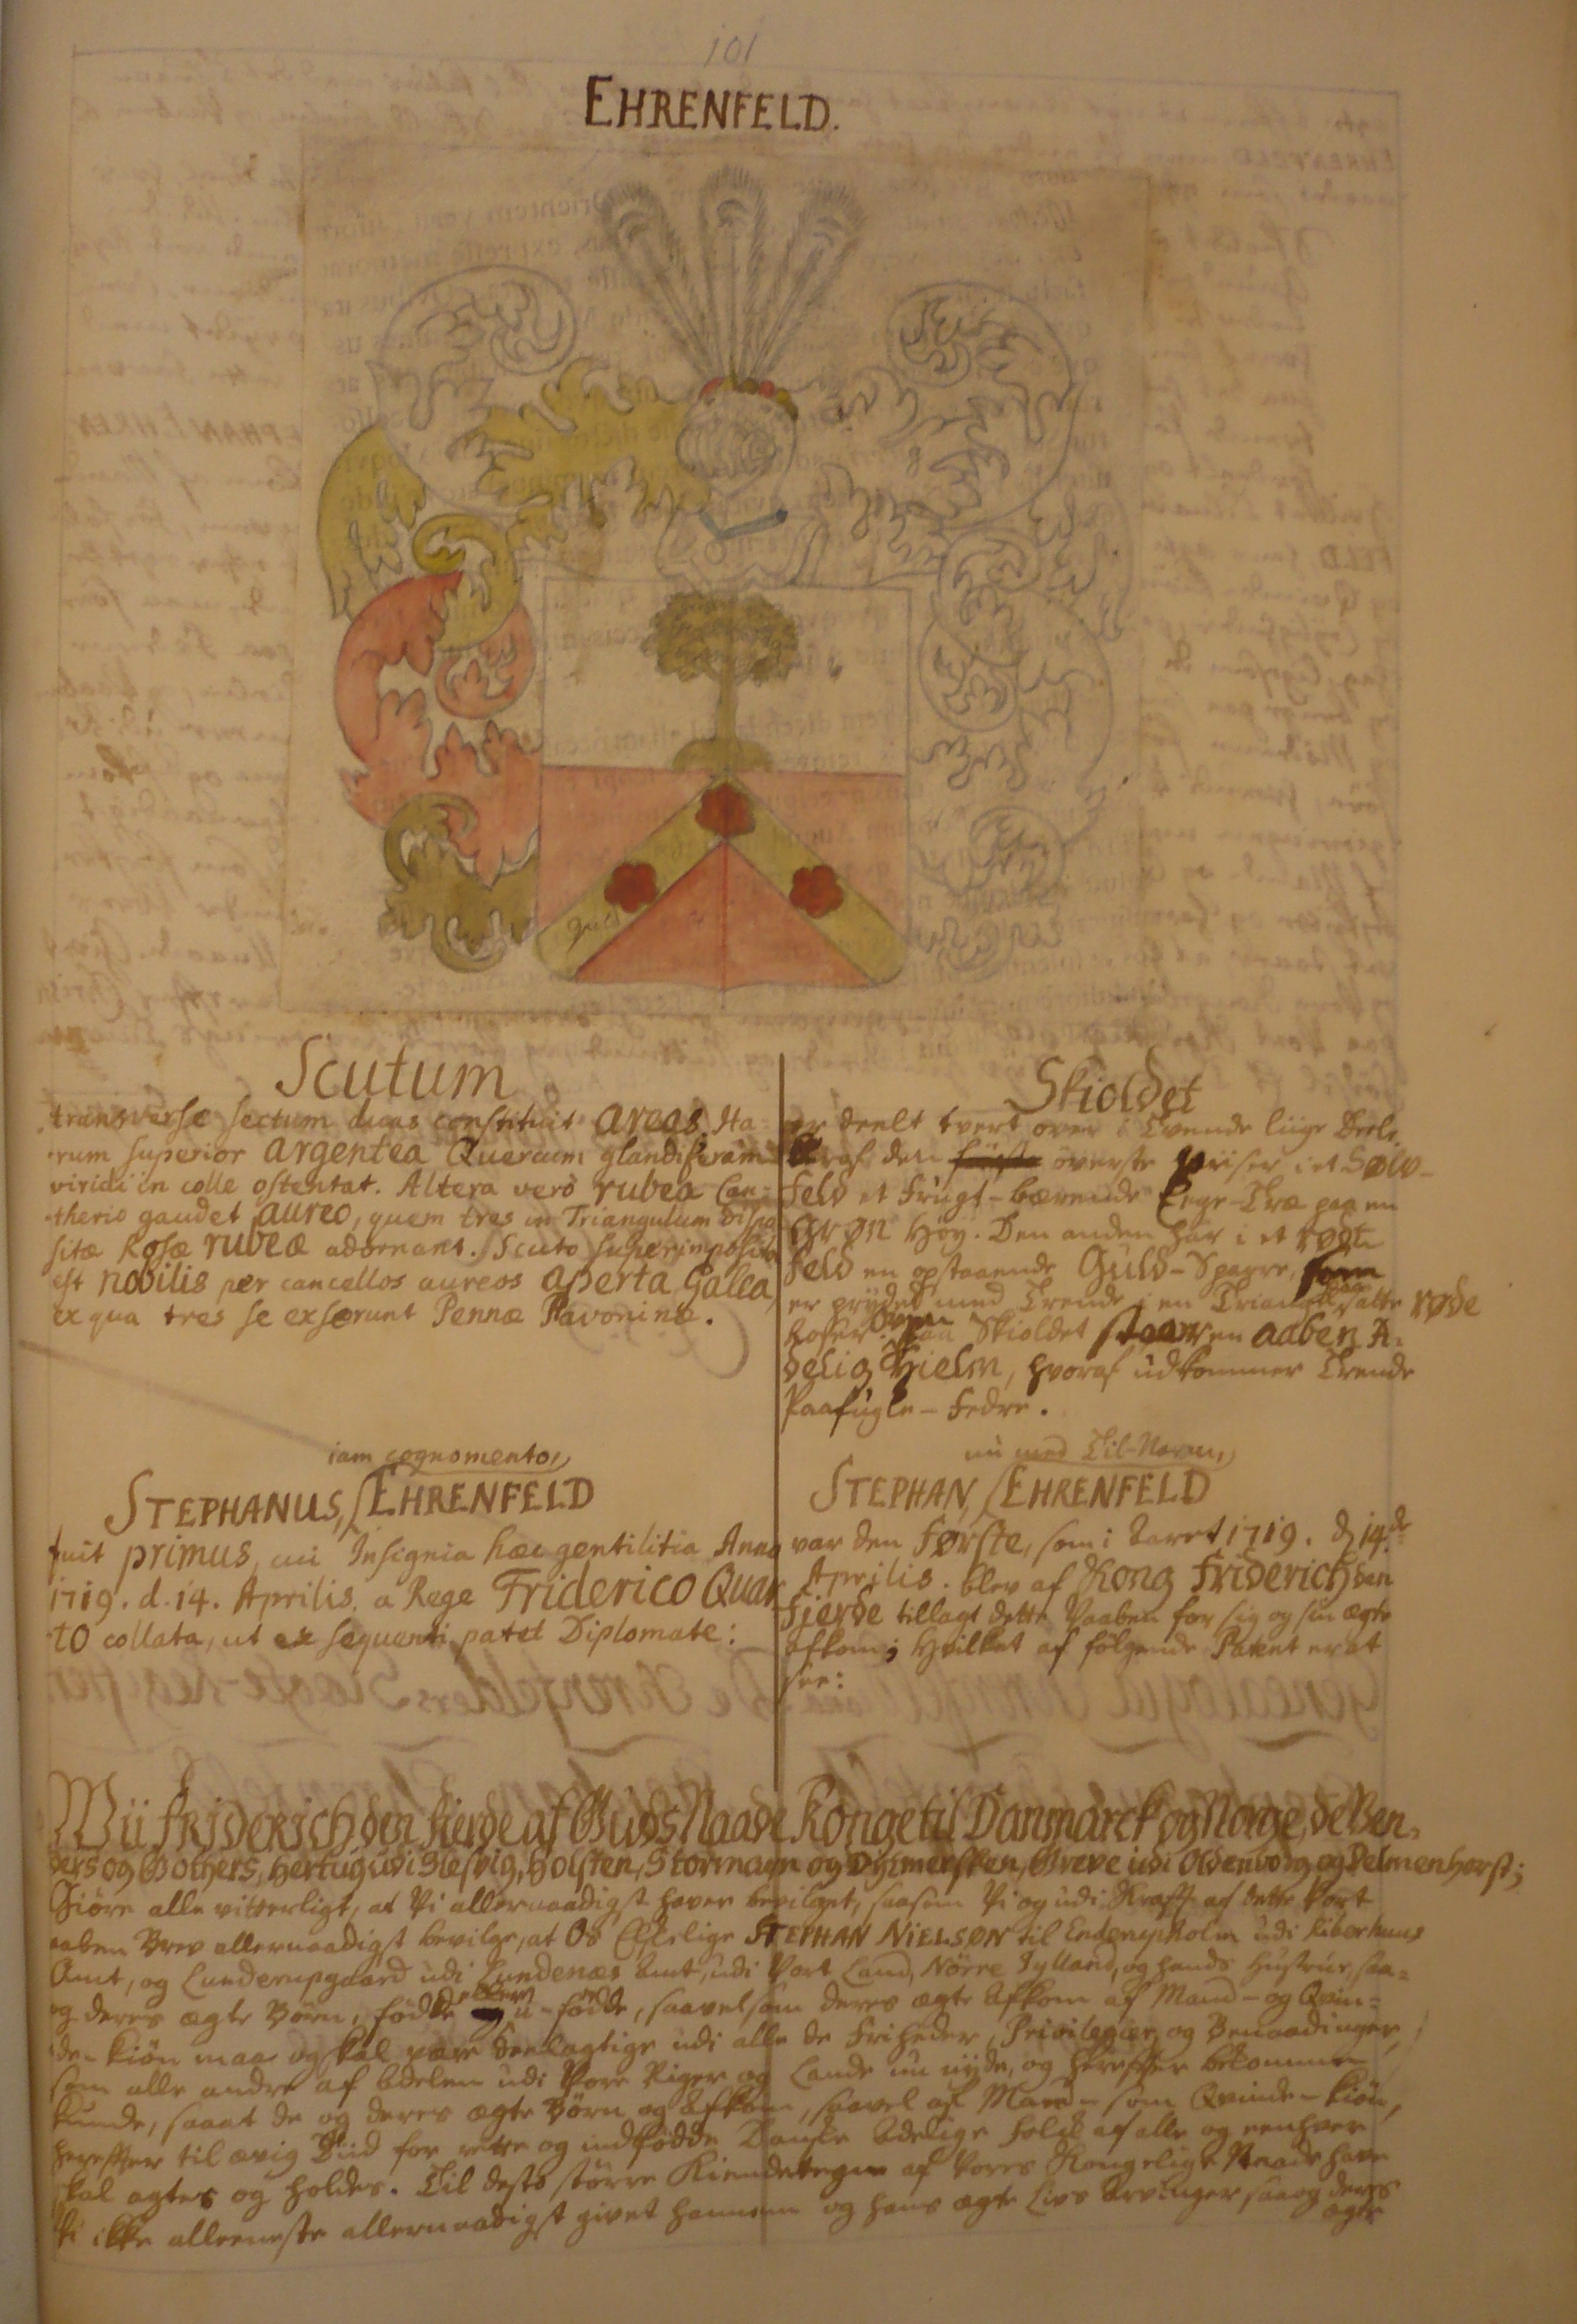 101
EHRENFELD.
Guld
Scutum
transverse sectum duas constituit areas. Ha-
rum superior argentea Quercum glandiferam
viridi in colle ostentat. Altera verò rubea Can-
therio gaudet aureo, quem tres in Triangulum dispo
sitæ Rosæ rubeæ adornant. Scuto superimposita
est nobilis per cancellos aureos aperta Galea,
ex qua tres se exserunt Pennæ Pavoninæ.
Skioldet
er deelt tvert over i Tvende liige Deele,
hvoraf den første øverste viiser i et Sølv-
Feld et Frugt-bærende Eege-Træ paa en
Grøn Høy. Den anden har i et rødt
Feld en opstaaende Guld-Sparre, som
er prydet med Trende i en Triangel satte røde
Roser. Oven paa Skioldet staar en aaben A-
delig Hielm, hvoraf udkommer Trende
Paafugle-Fedre.
iam cognomento,
STEPHANUS, EHRENFELD
fuit primus, cui Insignia hæc gentilitia Anno
1719. d. 14. Aprilis. a Rege Friderico Quar
to collata, ut ex sequenti patet Diplomate:
nu med Til-Navn,
STEPHAN, EHRENFELD
var den Første, som i Aaret 1719. d. 14de
Aprilis. blev af Kong Friderich den
Fjerde tillagt dette Vaaben for sig og sin ægte
Afkom; Hvilket af følgende Patent er at
see:
Wii Friderich den Fierde af Guds Naade Konge til Danmarck og Norge, de Ven-
ders og Gothers, Hertug udi Slesvig, Holsten, Stormarn og Dytmersken, Greve udi Oldenborg og Delmenhorst;
Giøre alle vitterligt, at Vi allernaadigst haver bevilget, saasom Vi og udi Krafft af dette Vort
aaben Brev allernaadigst bevilge, at Os Elskelige STEPHAN NIELSØN til Enderupholm udi Riberhuus
Amt, og Lunderupgaard udi Lundenæs Amt, udi Vort Land, Nørre Jylland, og hands Hustrue, saa-
og deres ægte Børn, fødde eller u-fødde, saavelsom deres ægte Afkom af Mand- og Qvin-
de-kiøn maa og skal være deelagtige udi alle de Friheder, Privilegier og Benaadinger,
som alle andre af Adelen udi Vore Riger og Lande nu nyde, og hereffter bekomme
kunde, saaat de og deres ægte Børn og Afkom, saavel af Mand- som Qvinde-kiøn,
hereffter til ævig Tiid for rette og indfødde Danske Adelige Folck af alle og eenhver
skal agtes og holdes. Til desto større Kiendetegn af Vores Kongelige Naade have
Vi ikke alleeneste allernaadigst givet hannem og hans ægte Livs Arvinger saa og deres
ægte